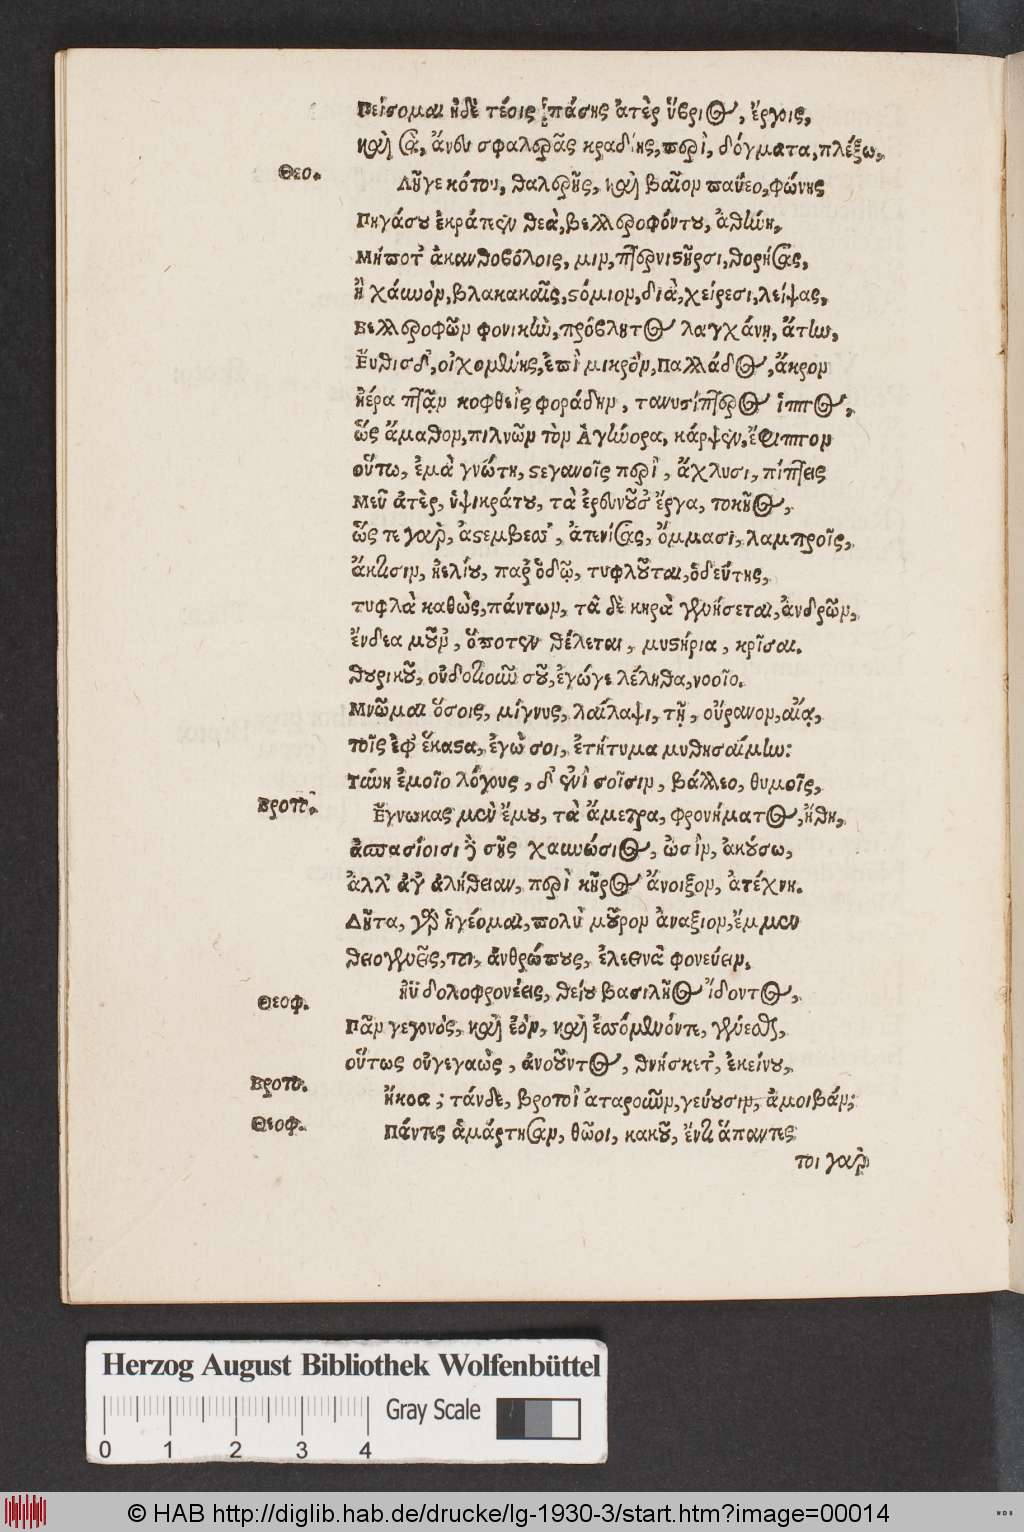 Πείσομαι ἠδὲ τέοις πάσης ἀτὲρ ὕβριος, ἔργοις,
καὶ σὰ, ἄνευ σφαλερᾶς κραδίης, περὶ, δόγματα, πλέξω,
Θεο. Λῦγε κότου, θαλερῆς, καὶ βαῖον παύεο, φώνης
Πηγάσου ἐκράτεεν θεὰ, βελλεροφόντου, ἀθήνη,
Μήποτ' ἀκανθοβόλοις, μιν, πτερνιστῆρσι, θορήσας,
ἢ χάυνον, βλακακαῖς, στόμιον, διὰ, χείρεσι, λείψας,
Βελλεροφῶν φονικὴν, πρόβλυτος λαγχάνῃ, ἄτην,
Ἔυθισδ', οἰχομένης, ἐπὶ μικρὸν, Παλλάδος, ἄκρον
ἠέρα πτᾶν κοφθεὶς φοράδην, τανυσίπτερος ἵππος,
ὣς ἄμαθον, πιλνῶν τὸν Ἀγήνορα, κάρψεν,
οὕτω, ἐμὰ γνώτη, στεγανοῖς περὶ, ἄχλυσι, πίπτεις
Μεῦ ἀτὲρ, ὑψικράτου, τὰ ἐρευνοῦσ' ἔργα, τοκῆος,
ὥς τε γὰρ, ἀστεμβεωσ', ἀτενίσας, ὄμμασι, λαμπροῖς,
ἄκτισιν, ἠελίου, παρ' ὅδῳ, τυφλοῦται, ὁδεύτης,
τυφλὰ καθὼς, πάντων, τὰ δὲ κηρὰ γενήσεται, ἀνδρῶν,
ἔνδεα μοῦν, ὅποτεν θέλεται, μυστήρια, κρῖσαι.
θυρικοῦ, σοῦ, ἐγώγε λέληθα, νοοῖο.
Μνῶμαι ὅσοις, μίγνυς, λαίλαψι, τῇ, οὔρανον, αἴᾳ,
τοῖς ἐφ' ἕκαστα, ἐγὼ σοι, ἐτήτυμα μυθησαίμην:
Τάυτη ἐμοῖο λόγους, δ' ἐνὶ σοῖσιν, βάλλεο, θυμοῖς,
Βροτὸ. Ἔγνωκας μὲν ἔμου, τὰ ἄμετρα, φρονήματος, ἤθη,
ἀσπασίοισι δὲ σοῦς χαυνώσιος, ὦσὶν, ἀκούσω,
ἀλλ' ἀγ' ἀλήθειαν, περὶ κῆρος ἄνοιξον, ἀτέχνη.
Δῦτα, γὰρ ἡγέομαι, πολὺ μοῦρον ἀναξιον, ἔμμεν
θειογενεῖς, τοι, ἀνθρώπους, ἐλεεινὰ φονεύειν.
Θεοφ. ἠῢ δολοφρονέεις, θείου βασιλῆος ἴδοντος,
Πᾶν γεγονὸς, καὶ ἐὸν, καὶ ἐσσόμενόντε, γενέσθαι,
οὕτως οὐγεγαὼς, ἀνοοῦντος, θνήσκετ', ἐκείνου,
Βροτο. ἤκοα; τάνδε, βροτοὶ ἀταροιῶν, γεύουσιν, ἀμοιβάν;
Θεοφ. Πάντες ἁμάρτησαν, θῶοι, κακοῦ, ἔντι ἅπαντες
τοι γὰρ
Herzog August Bibliothek Wolfenbüttel
Gray Scale
0 1 2 3 4
© HAB http://diglib.hab.de/drucke/lg-1930-3/start.htm?image=00014